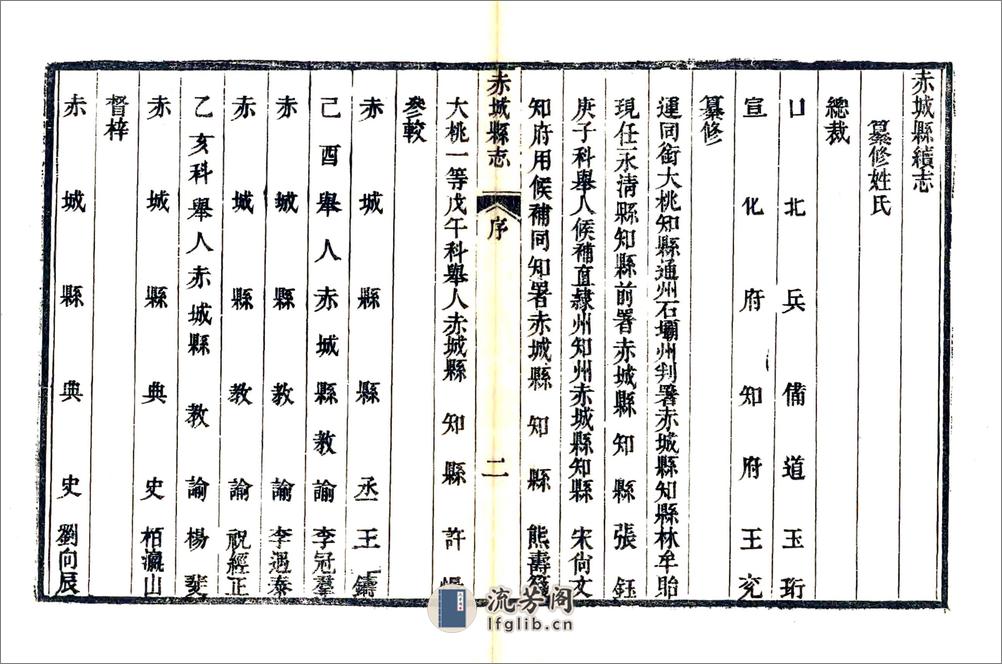 赤城縣續志
纂修姓氏
總裁
口北兵備道玉珩
宣化府知府王兖
纂修
運同銜大桃知縣通州石壩州判署赤城縣知縣林牟貽
現任永清縣知縣前署赤城縣知縣張鈺
庚子科舉人候補直隸州知州赤城縣知縣宋尙文
知府用候補同知署赤城縣知縣熊壽籛
赤城縣志
序
二
大桃一等戊午科舉人赤城縣知縣許
參較
赤城縣縣丞王鑄
己酉舉人赤城縣教諭李冠羣
赤城縣教諭李遇泰
赤城縣教諭祝經正
乙亥科舉人赤城縣教諭楊斐
赤城縣典史栢瀛山
督梓
赤城縣典史劉向辰
流芳阁
lfglib.cn